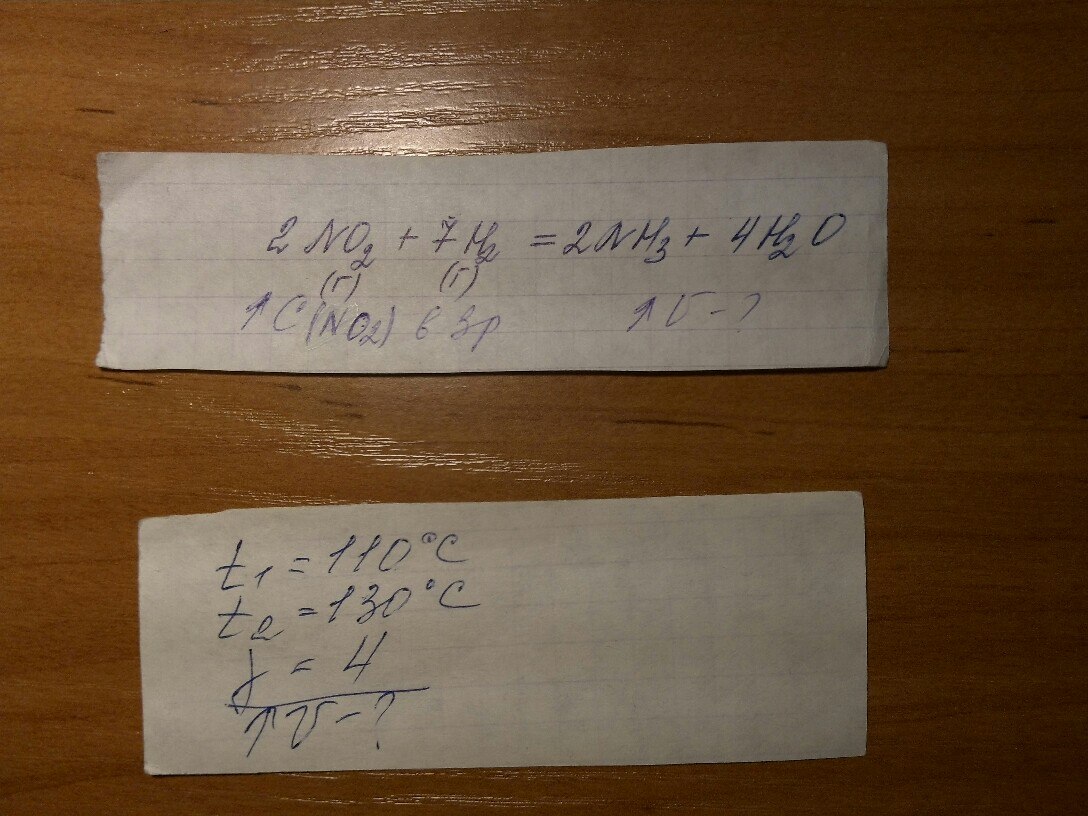 2NO₂ + 7H₂ = 2NH₃ + 4H₂O
(г) (г)
↑C(NO₂) в 3р ↑V-?
t₁ = 110°C
t₂ = 130°C
γ = 4
↑V-?